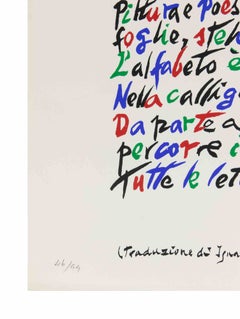 Pittura e poes
foglie, stel
L'alfabeto è
Nella callig
Da parte a
percorre c
Tutte le let
(Traduzione di Igna